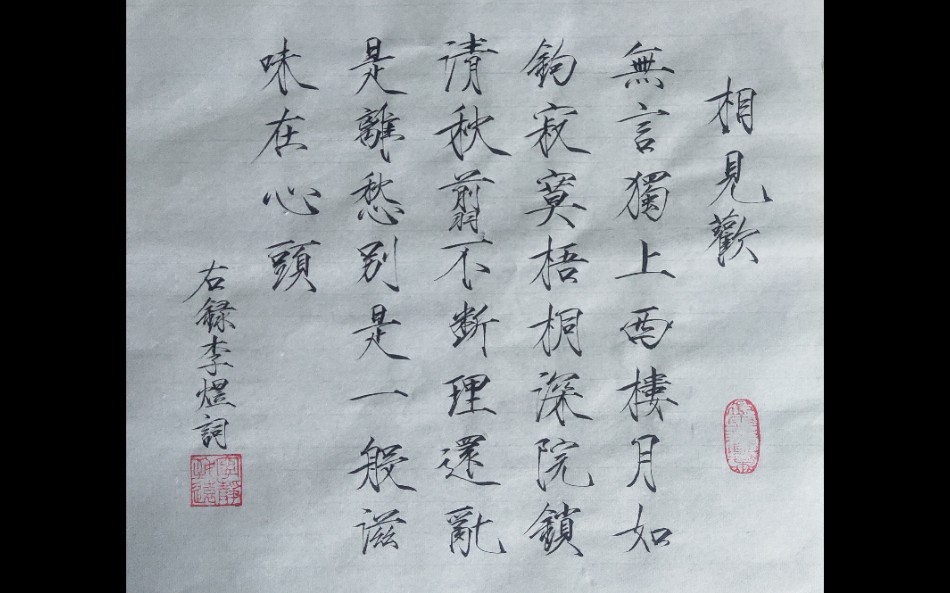 相見歡
無言獨上西樓月如
鈎寂寞梧桐深院鎖
清秋翦不斷理還亂
是離愁別是一般滋
味在心頭
右錄李煜詞
寧靜致遠